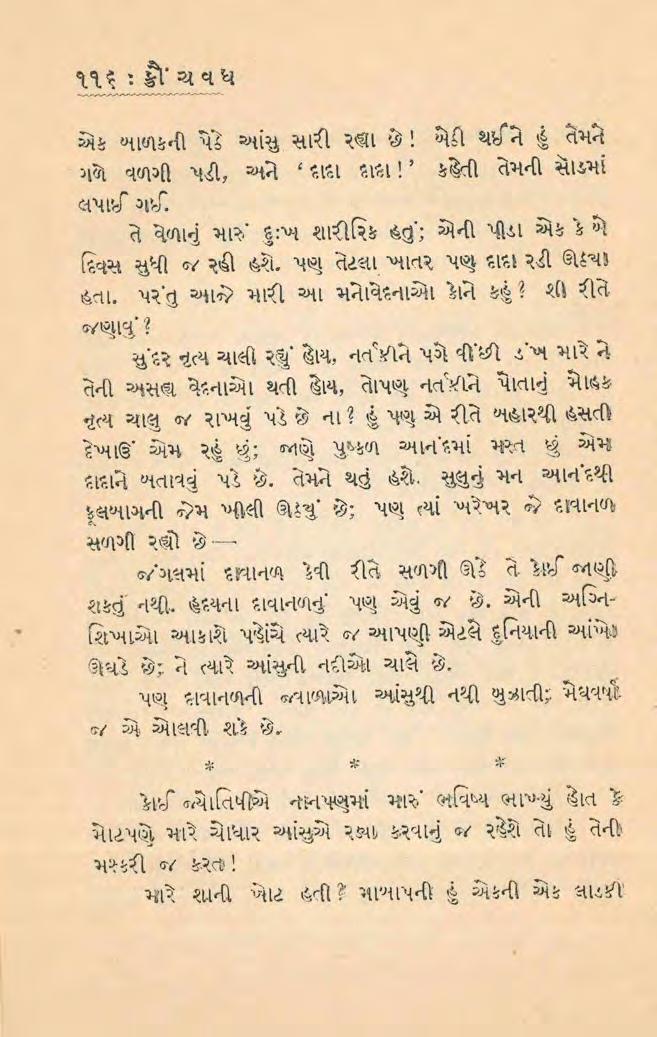 ૧૧૬ : ક્રૌંચવધ
એક બાળકની પેઠે આંસુ સારી રહ્યા છે! બેઠી થઈને હું તેમને
ગળે વળગી પડી, અને ‘દાદા દાદા!’ કહેતી તેમની સોડમાં
લપાઈ ગઈ.
તે વેળાનું મારું દુઃખ શારીરિક હતું; એની પીડા એક કે બે
દિવસ સુધી જ રહી હશે. પણ તેટલા ખાતર પણ દાદા રડી ઊઠ્યા
હતા. પરંતુ આજે મારી આ મનોવેદનાઓ કોને કહું? શી રીતે
જણાવું?
સુંદર નૃત્ય ચાલી રહ્યું હોય, નર્તકીને પગે વીંછી ડંખ મારે ને
તેની અસહ્ય વેદનાઓ થતી હોય, તોપણ નર્તકીને પોતાનું મોહક
નૃત્ય ચાલુ જ રાખવું પડે છે ના? હું પણ એ રીતે બહારથી હસતી
દેખાઉં એમ રહું છું; જાણે પુષ્કળ આનંદમાં મસ્ત છું એમ
દાદાને બતાવવું પડે છે. તેમને થતું હશે. સુલુનું મન આનંદથી
ફૂલબાગની જેમ ખીલી ઊઠ્યું છે; પણ ત્યાં ખરેખર જે દાવાનળ
સળગી રહ્યો છે —
જંગલમાં દાવાનળ કેવી રીતે સળગી ઊઠે તે કોઈ જાણી
શકતું નથી. હૃદયના દાવાનળનું પણ એવું જ છે. એની અગ્નિ-
શિખાઓ આકાશે પહોંચે ત્યારે જ આપણી એટલે દુનિયાની આંખો
ઊઘડે છે; ને ત્યારે આંસુની નદીઓ ચાલે છે.
પણ દાવાનળની જ્વાળાઓ આંસુથી નથી બુઝાતી; મેઘવર્ષા
જ એ ઓલવી શકે છે.
* * *
કોઈ જ્યોતિષીએ નાનપણમાં મારું ભવિષ્ય ભાખ્યું હોત કે
મોટપણે મારે ચોધાર આંસુએ રડ્યા કરવાનું જ રહેશે તો હું તેની
મશ્કરી જ કરત!
મારે શાની ખોટ હતી? માબાપની હું એકની એક લાડકી